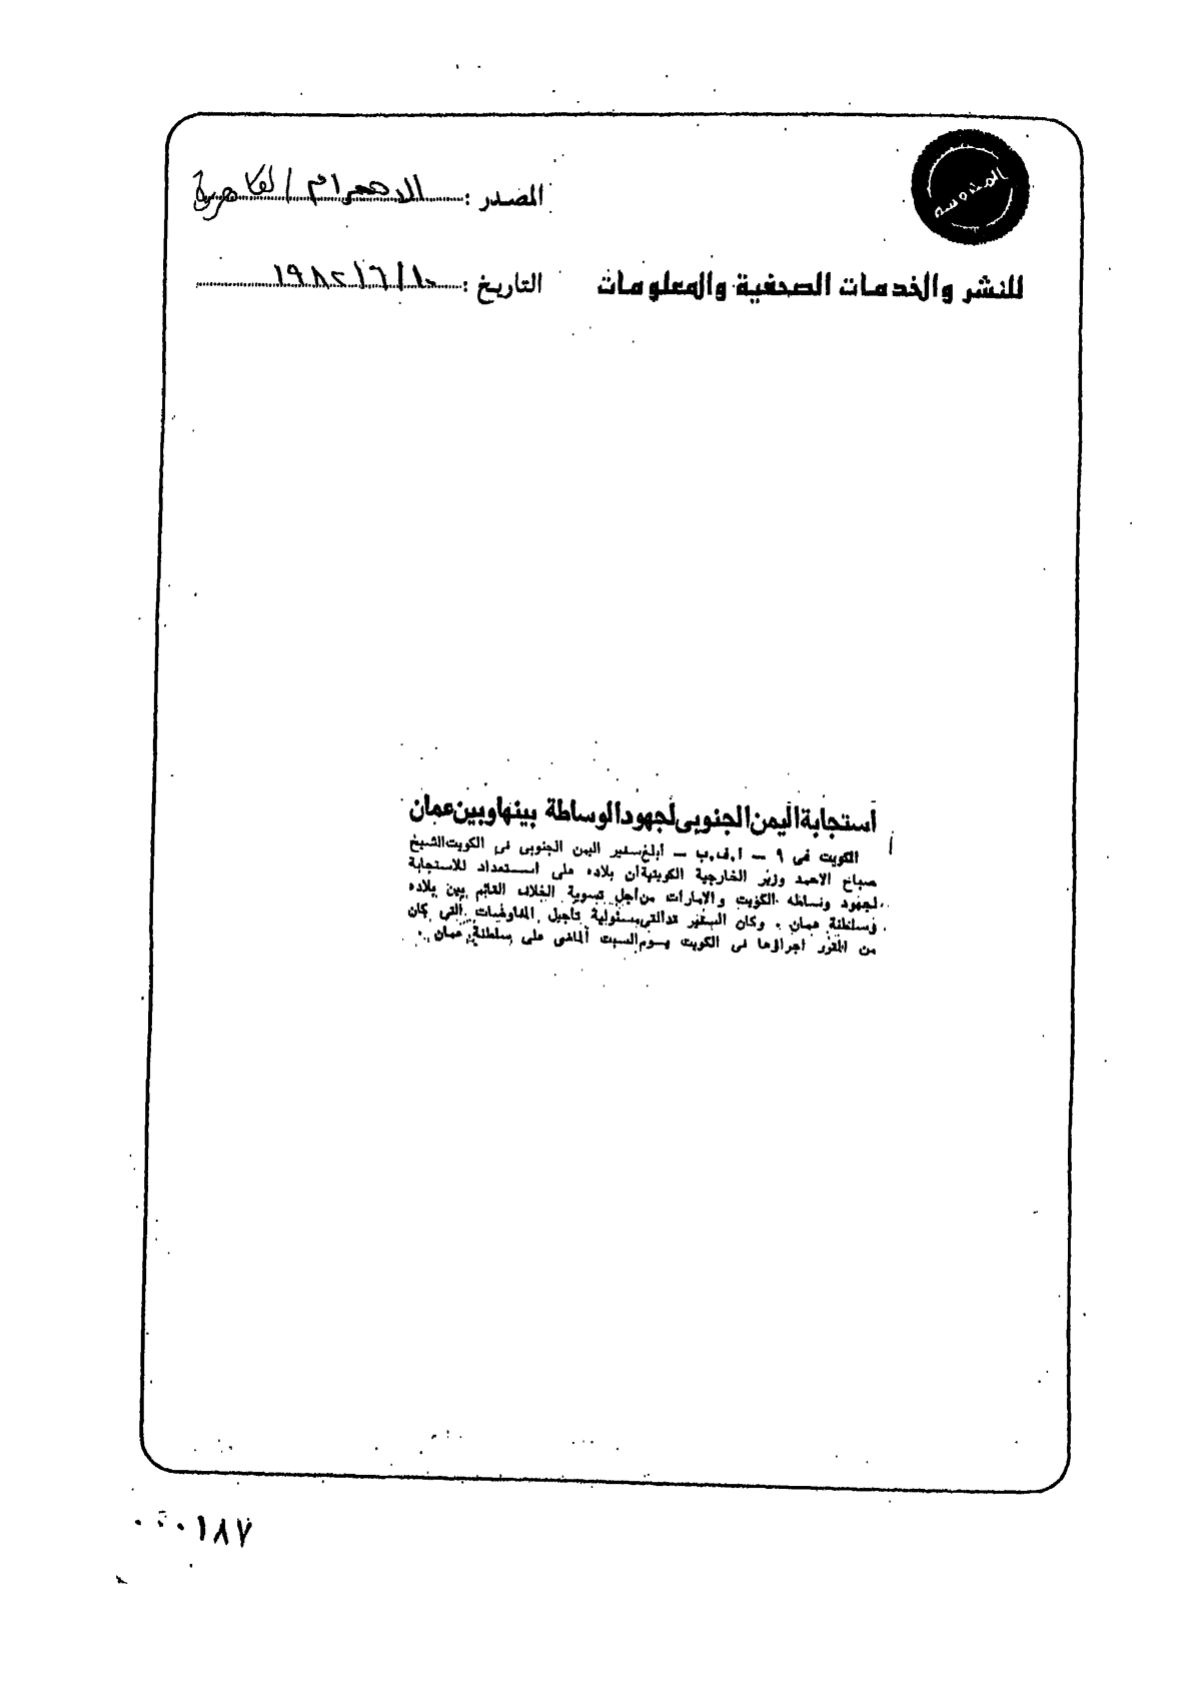 المحروسة
المصدر : الاهرام / القاهرية
للنشر والخدمات الصحفية والمعلومات
التاريخ : ١٠/٦/١٩٨٢
استجابة اليمن الجنوبى لجهود الوساطة بينها وبين عمان
الكويت فى ٩ – أ.ف.ب – أبلغ سفير اليمن الجنوبى فى الكويت الشيخ
صباح الاحمد وزير الخارجية الكويتية أن بلاده على استعداد للاستجابة
لجهود وساطة الكويت والامارات من أجل تسوية الخلاف القائم بين بلاده
وسلطنة عمان . وكان السفير قد القى بمسئولية تأجيل المفاوضات التى كان
من المقرر اجراؤها فى الكويت يوم السبت الماضى على سلطنة عمان .
٠٠٠١٨٧